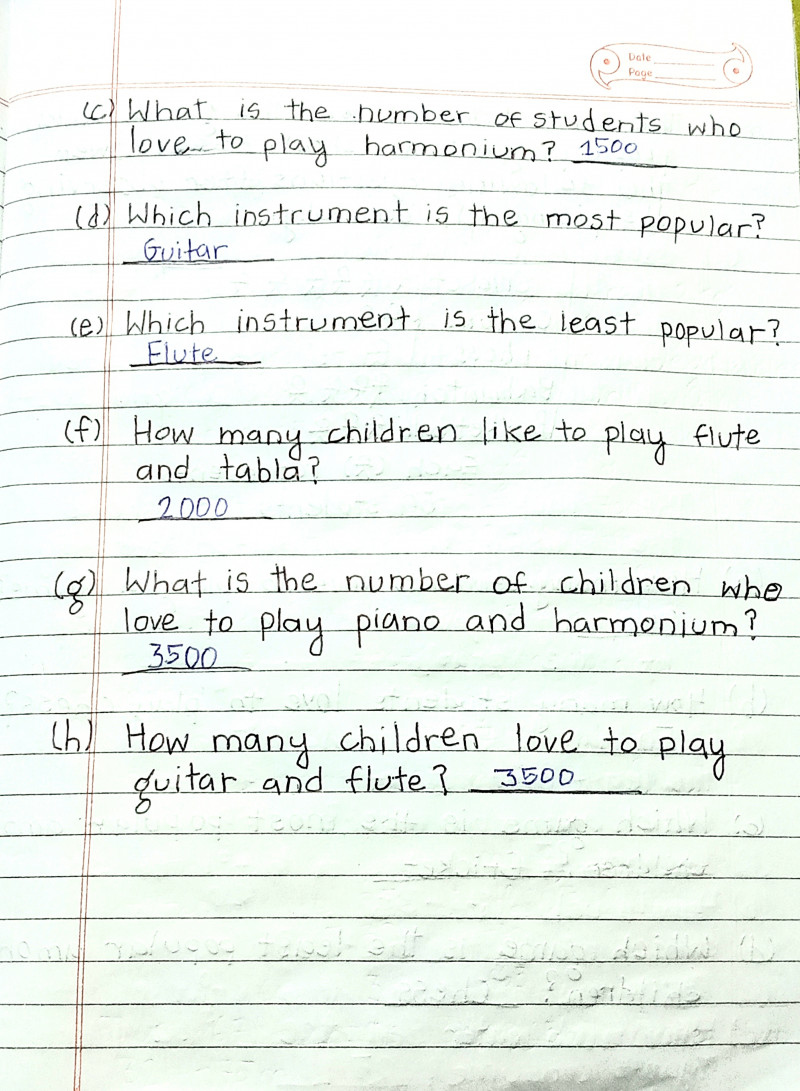 Date
Page
(c) What is the number of students who
love to play harmonium? 1500
(d) Which instrument is the most popular?
Guitar
(e) Which instrument is the least popular?
Flute
(f) How many children like to play flute
and tabla?
2000
(g) What is the number of children who
love to play piano and harmonium?
3500
(h) How many children love to play
guitar and flute? 3500